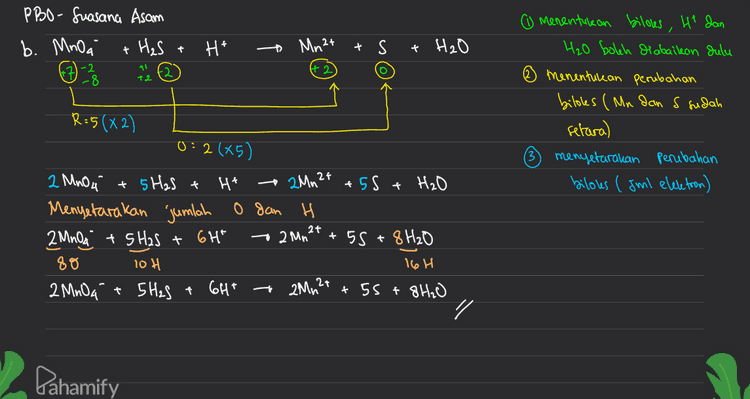 PBO - Suasana Asam
b. MnO₄⁻ + H₂S + H⁺ → Mn²⁺ + S + H₂O
+7 -2 -8 +1 +2 -2 +2 0
R = 5 (×2)
O : 2 (×5)
2 MnO₄⁻ + 5 H₂S + H⁺ → 2Mn²⁺ + 5S + H₂O
Menyetarakan jumlah O dan H
2MnO₄⁻ + 5H₂S + 6H⁺ → 2Mn²⁺ + 5S + 8H₂O
8O 10H 16H
2MnO₄⁻ + 5H₂S + 6H⁺ → 2Mn²⁺ + 5S + 8H₂O //
① Menentukan biloks, H⁺ dan
H₂O boleh diabaikan dulu
② Menentukan perubahan
biloks (Mn dan S sudah
setara)
③ menyetarakan perubahan
biloks (jml elektron)
Pahamify